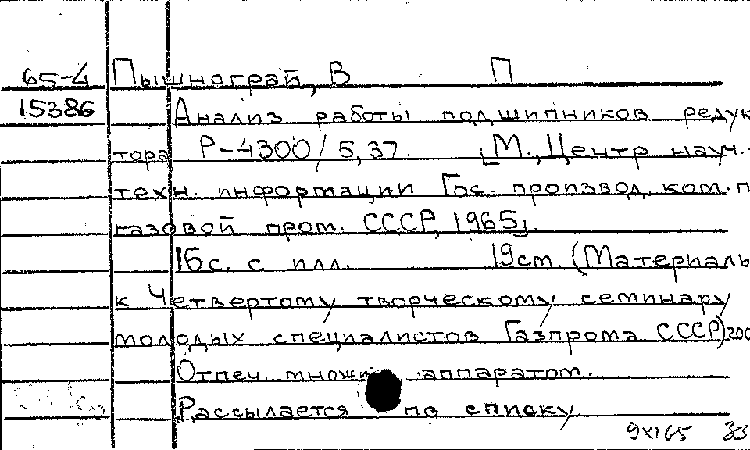 65-4 Пышнограй, В П
15386 Анализ работы подшипников редук
тора Р-4300/5,37. [М., Центр науч.-
техн. информации Гос. производ. ком. п
газовой пром. СССР, 1965].
16 с. с илл. 19 см. (Материалы
к Четвертому творческому семинару
молодых специалистов Газпрома СССР) 200
Отпеч. множит. аппаратом.
Рассылается по списку
9XI65 33